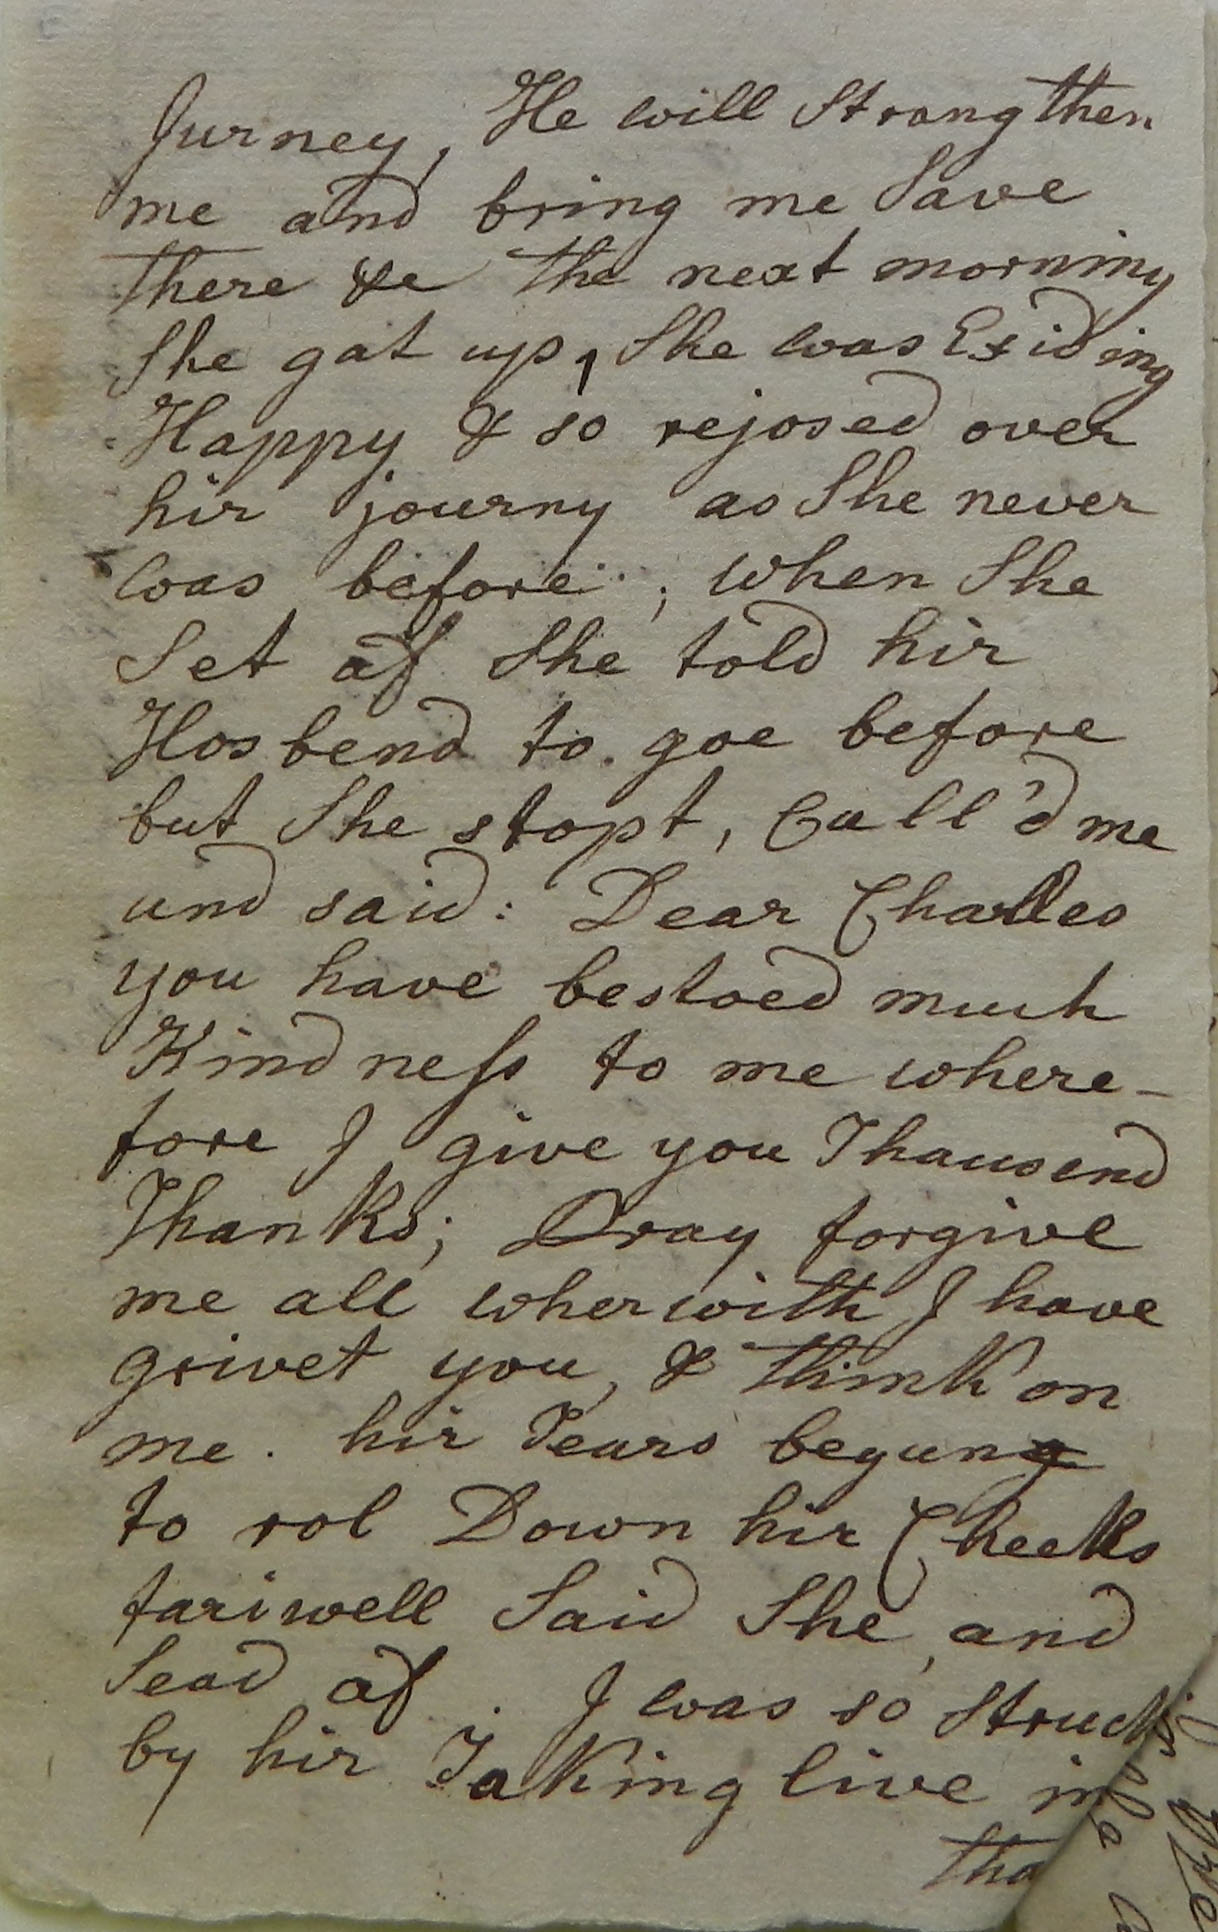 Jurney, He will Strangthen
me and bring me Save
there &e the next morning
She gat up, She was Exiding
Happy & so rejosed over
hir journy as She never
was before; when She
Set af She told hir
Hosbend to goe before
but She stopt, Call'd me
und said: Dear Charles
you have bestoed much
Kindness to me where-
fore I give you Thausend
Thanks; Pray forgive
me all wherwith I have
grivet you, & think on
me. hir Tears begun
to rol Down hir Cheeks
fariwell Said She, and
Sead af. I was so Struck
by hir Taking live in
tha